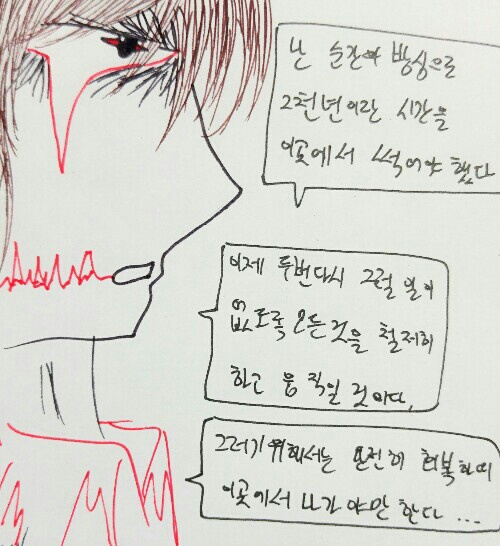 난 순간의 방심으로
2천년이란 시간을
이곳에서 썩어야 했다
이제 두번다시 그럴 일이
없도록 모든것을 철저히
하고 움직일 것이다.
그러기 위해서는 온전히 회복하며
이곳에서 나가야만 한다...